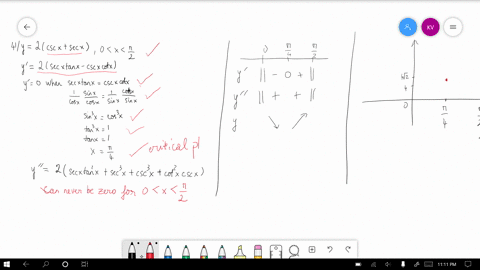 KV
4/ y = 2(cscx + secx), 0 < x < π/2
y' = 2(secx tanx - cscx cotx)
y' = 0 when secx tanx = cscx cotx
1/cosx sinx/cosx = 1/sinx cosx/sinx
sin³x = cos³x
tan³x = 1
tanx = 1
x = π/4
critical pt
y'' = 2(secx tan²x + sec³x + csc³x + cot²x cscx)
can never be zero for 0 < x < π/2
0 π/4 π/2
y' || - 0 + ||
y'' || + + ||
y ↘ ↗
0 π/4
11:11 PM